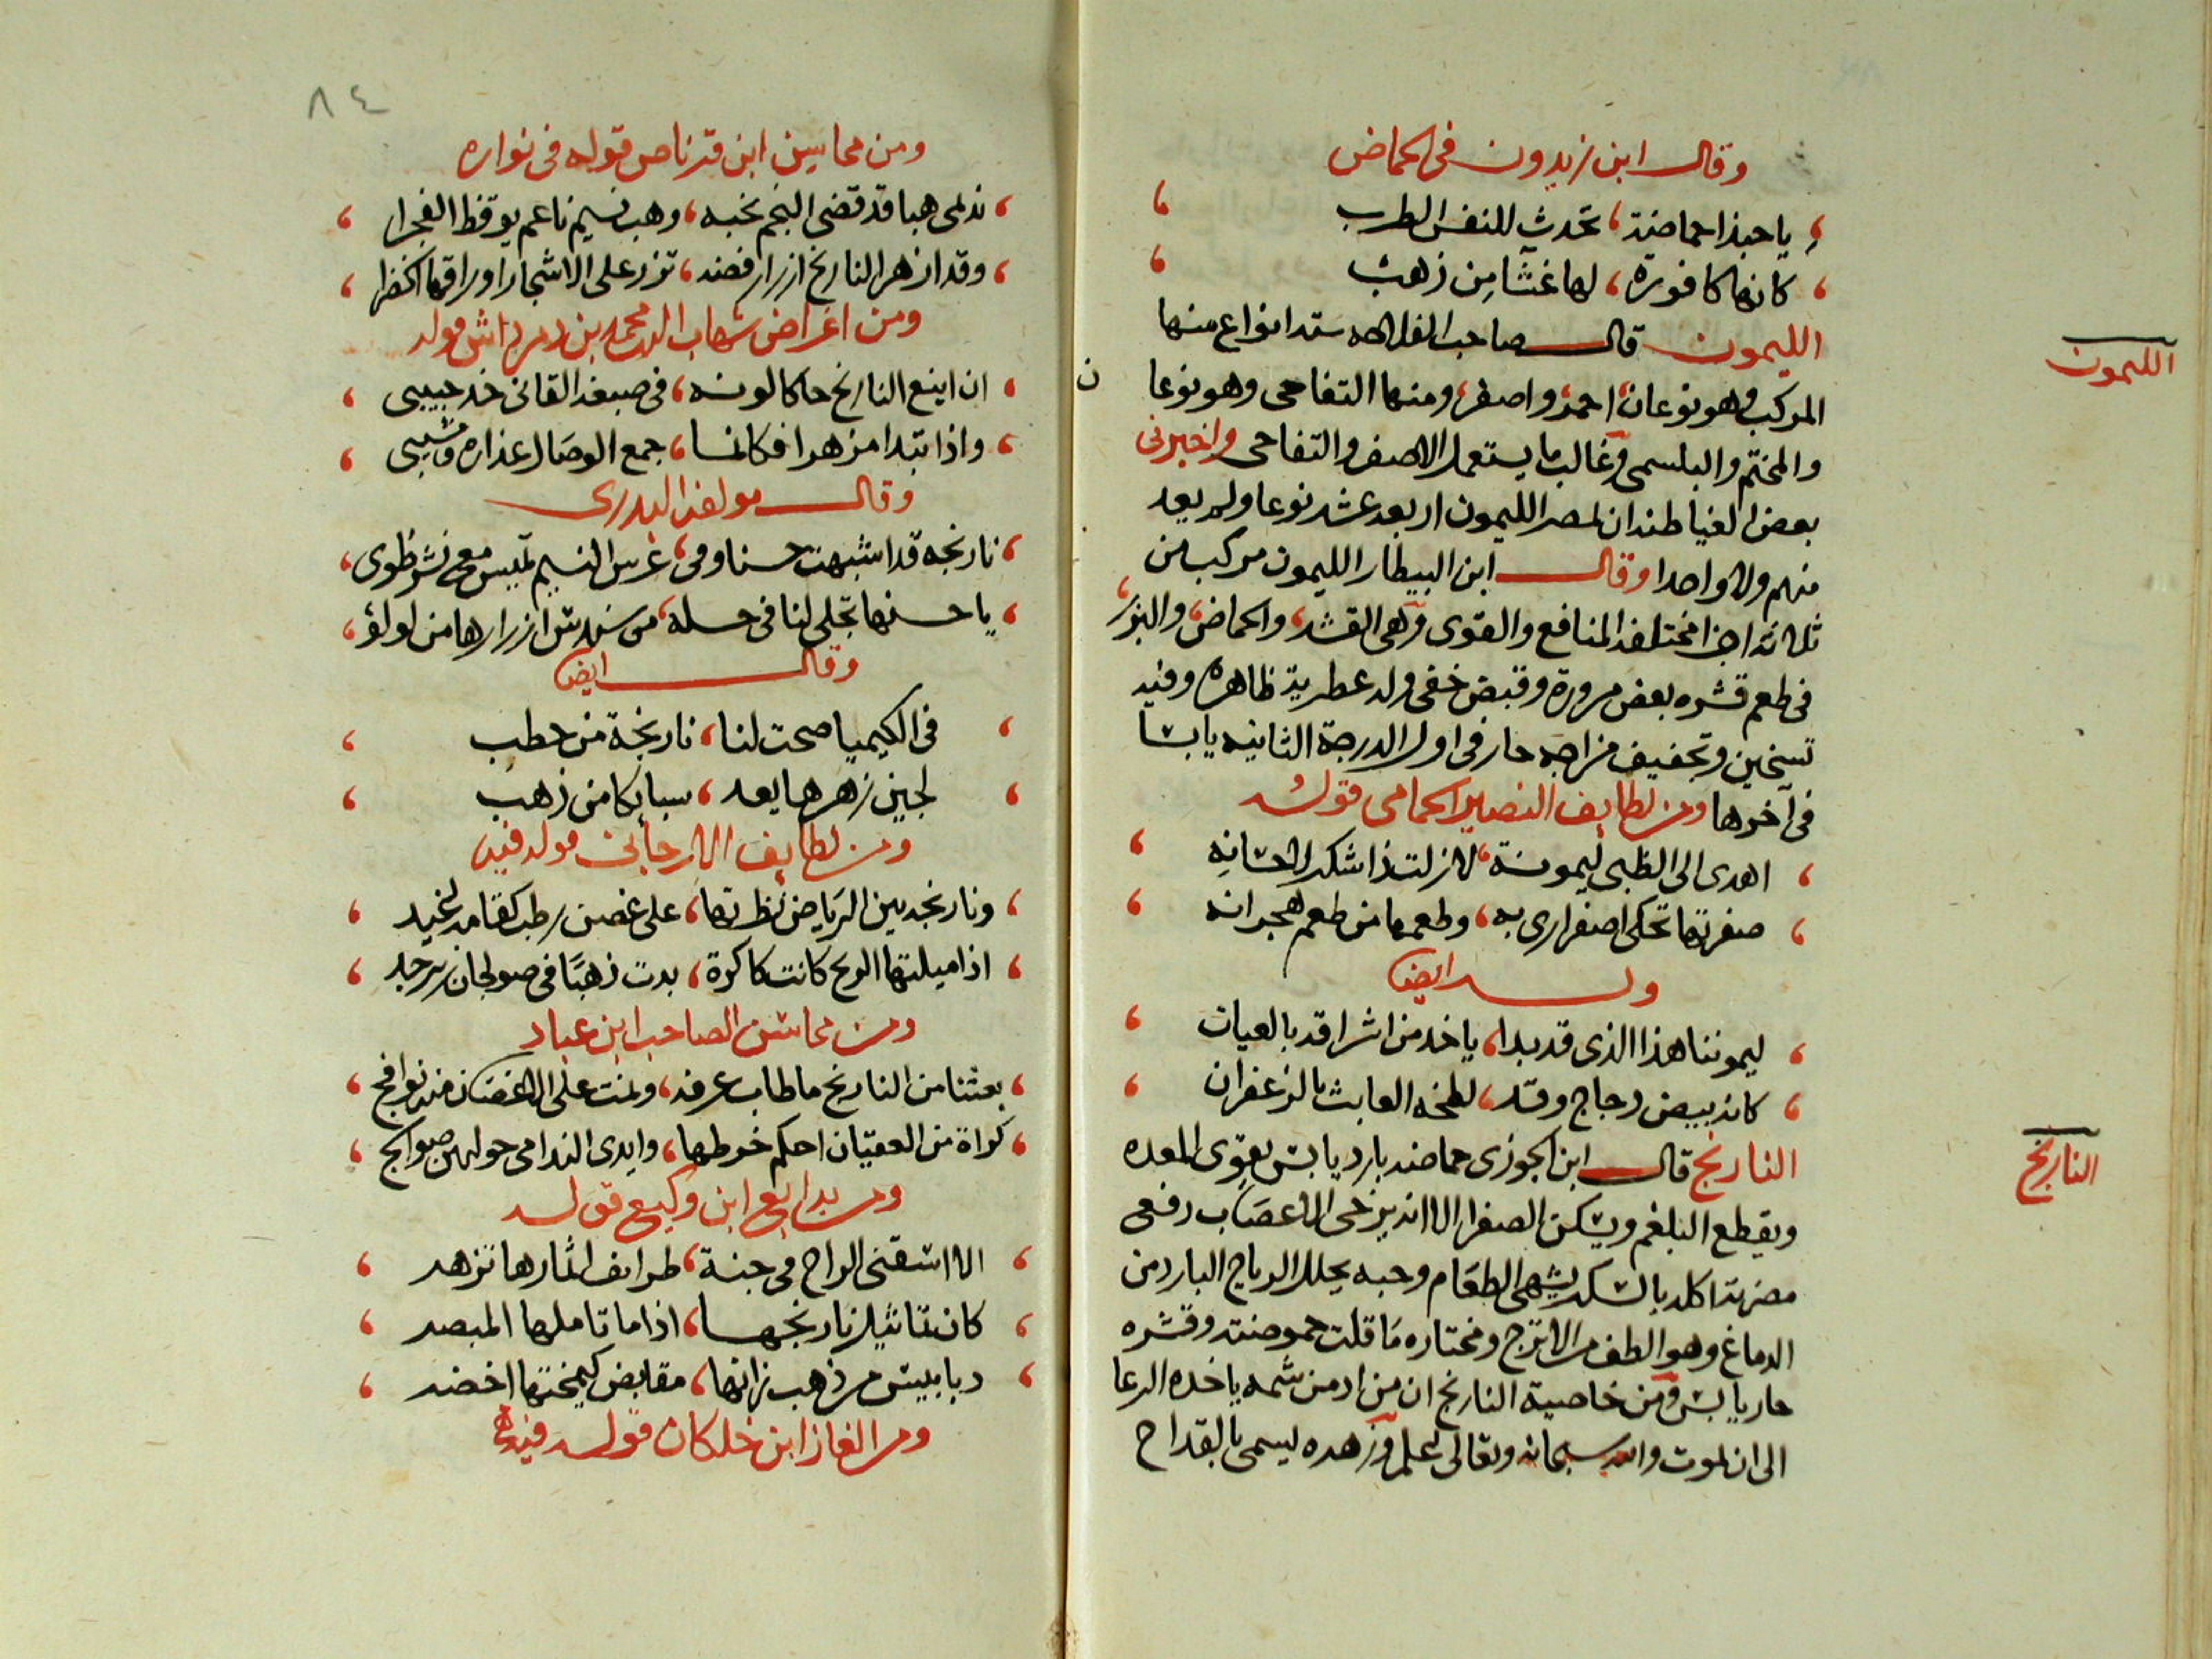 وقال ابن زيدون في الحماض
يا حبذا حماضة، تحدث للنفس الطرب
كانها كافورة، لها غشا من ذهب
الليمون
الليمون قال صاحب الفلاحه سته انواع منها
المركب وهو نوعان احمر واصفر ومنها التفاحى وهو نوعا ن
والمختم والبلسمى وغالب ما يستعمل الاصفر والتفاحى واخبرنى
بعض الغياطنه ان بمصر الليمون اربعة عشر نوعا ولم يعد
منهم ولا واحدا وقال ابن البيطار الليمون مركب من
ثلاثة اجزا مختلفة المنافع والقوى وهى القشر، والحماض، والبزر،
فى طعم قشره بعض مرورة وقبض خفى وله عطرية ظاهره وفيه
تسخين وتجفيف مزاجه حار فى اول الدرجة الثانيه يابسا
فى آخرها ومن لطايف النصير الحمامى قوله
اهدى الى الظبى ليمونة، لا زلت ذا شكر لاحسانه
صفرتها تحكى اصفرارى به، وطعمها من طعم هجرانه
وله ايضا
ليموننا هذا الذى قد بدا، ياخد من اشراقه بالعيان
كانه بيض دجاج وقد، لطخه العابث بالزعفران
النارنج
النارنج قال ابن الجوزى حماضه بارد يابس يقوى المعده
ويقطع البلغم ويسكن الصفرا الا انه يرخى الاعصاب دفعى
مضرته اكله بالسكر يشهى الطعام وحبه يحلل الرياح البارد من
الدماغ وهو الطف من الاترج ومختاره ما قلت حموضته وقشره
حار يابس ومن خاصية النارنج ان من ادمن شمه ياخده الرعا
الى ان يموت والله سبحانه وتعالى يعلم وزهره يسمى بالقداح
٨٤
ومن محاسن ابن قرناص قوله فى نواره
ندمى هبا قد قضى النجم نحبه، وهب نسيم ناعم يوقظ الفجرا
وقد ازهر النارنج ازرار فضه، تزر على الاشجار اوراقها الخضرا
ومن اغراض شهاب الدين محمد بن دمرداش قوله
ان اينع النارنج حاكا لونه، فى صبغه القانى خد حبيبى
واذا تبدا مزهرا فكانما، جمع الوصال عذاره ومشيبى
وقال مولفه البدرى
نارنجه قد اشبهت حسنا وفى، غرس النسيم تميس مع نشر ظوى،
يا حسنها تجلى لنا فى حله، من سندس ازرارها من لولؤ،
وقال ايضا
فى الكيميا صحت لنا، نارنجة من حطب
لجين زهرها يعد، سبايكا من ذهب
ومن لطايف الارجانى قوله فيه
ونارنجه بين الرياض نظرتها، على غصن رطب كقامه اغيد
اذا ميلتها الريح كانت كاكرة، بدت ذهبا فى صولجان زبرجد
ومن محاسن الصاحب ابن عباد
بعثنا من النارنج ما طاب عرفه، ونمت على الاغصان منه نوافج
كراة من العقيان احكم خرطها، وايدى الندامى حولهن صوالج
ومن بدايع ابن وكيع قوله
الا اسقنى الراح فى جنة، طرايف اثمارها تزهر
كان تماثيل نارنجها، اذا ما تاملها المبصر
دبابيس من ذهب زانها، مقابض كيمختها اخضر
ومن الغاز ابن خلكان قوله فيه